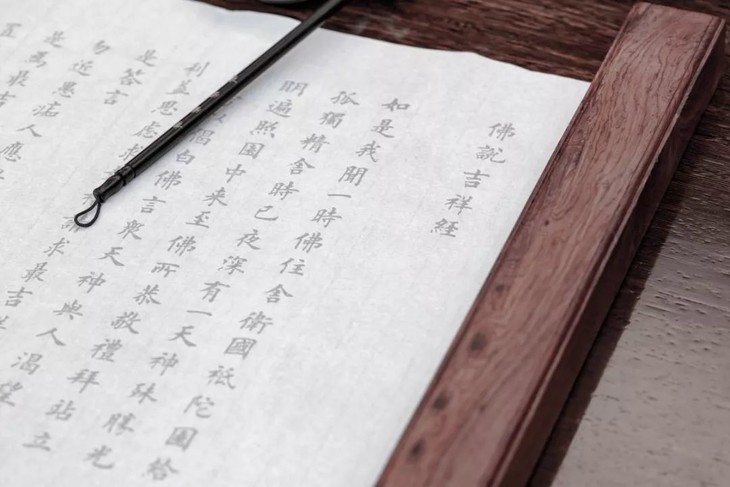 佛說吉祥経
如是我聞一時佛住舍衛國祇陀園給
孤獨精舍時已夜深有一天神殊勝光
明遍照園中来至佛所恭敬禮拜站立
以偈白佛言眾天神與人渴望
利益思慮請求最吉
是答言
勿近愚痴人應
是為最吉